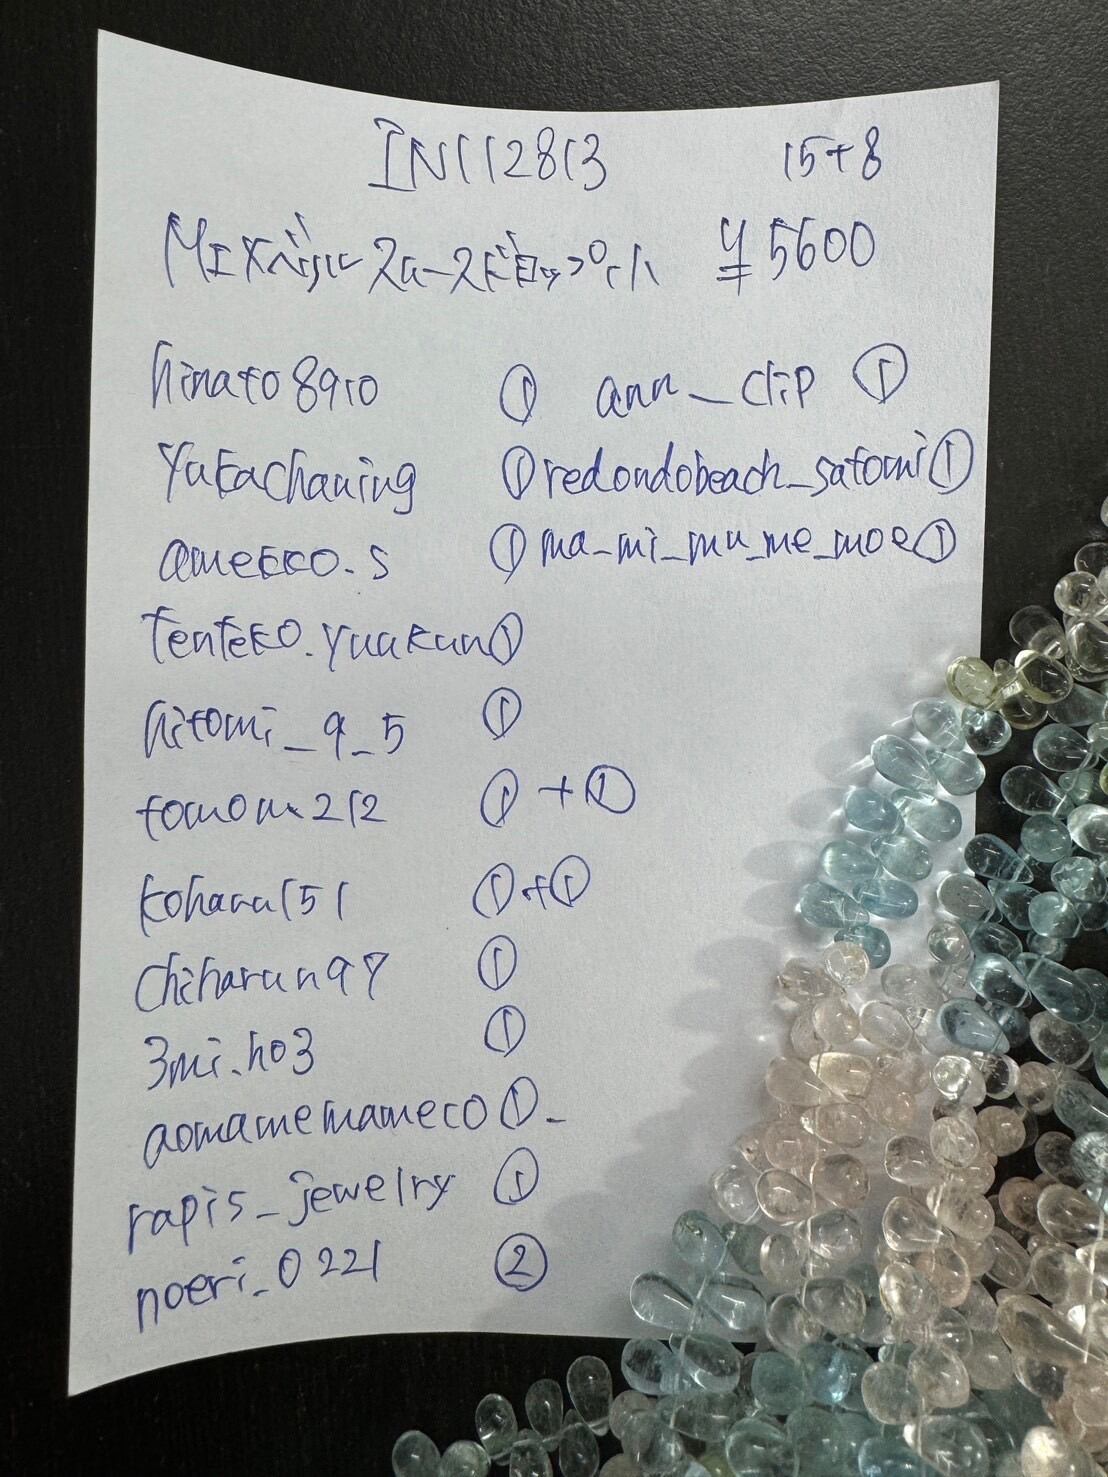 IN112813 15+8
MIXベリルスムースドロップ小 ¥5600
hinato8910 ① ann_clip ①
yukachaning ① redondobeach_satomi ①
amekko.s ① ma_mi_mu_me_moe ①
tenteko.yuakun ①
hitomi_9_5 ①
tomomi212 ①+①
koharu151 ①+①
chiharun97 ①
3mi.ho3 ①
aomamemameco ①
rapis_jewelry ①
noeri_0221 ②